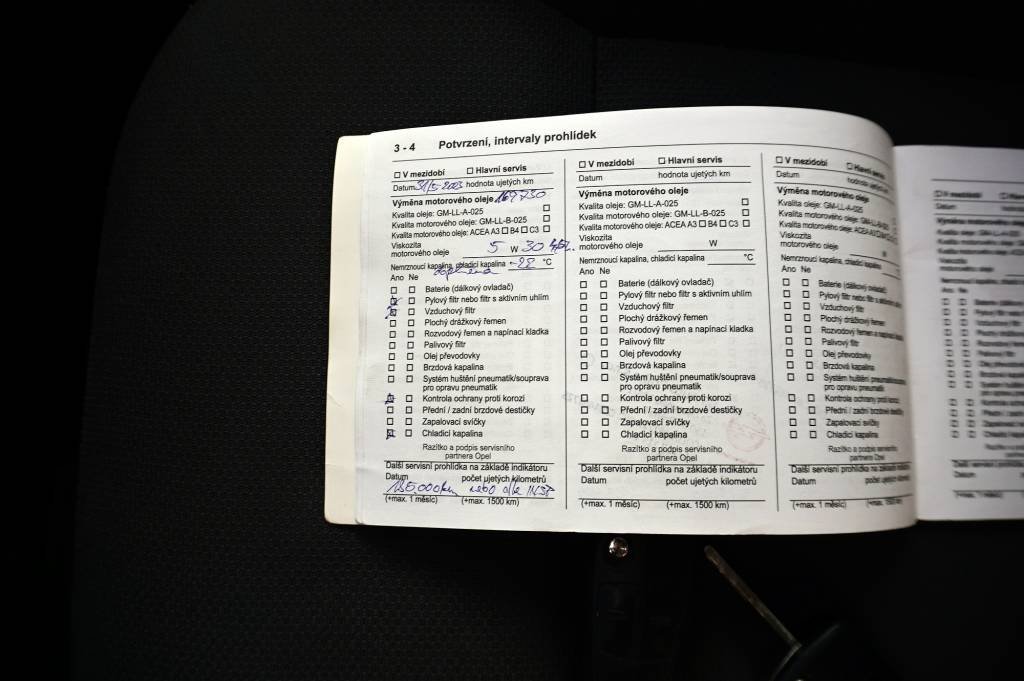 3 - 4 Potvrzení, intervaly prohlídek
☐ V mezidobí ☐ Hlavní servis
Datum 31/5-2023 hodnota ujetých km
Výměna motorového oleje 169730
Kvalita oleje: GM-LL-A-025 ☐
Kvalita motorového oleje: GM-LL-B-025 ☐
Kvalita motorového oleje: ACEA A3 ☐ B4 ☐ C3 ☐
Viskozita
motorového oleje 5 W 30
Nemrznoucí kapalina, chladicí kapalina -28 °C
doplněna
Ano Ne
Baterie (dálkový ovladač)
Pylový filtr nebo filtr s aktivním uhlím
Vzduchový filtr
Plochý drážkový řemen
Rozvodový řemen a napínací kladka
Palivový filtr
Olej převodovky
Brzdová kapalina
Systém huštění pneumatik/souprava
pro opravu pneumatik
Kontrola ochrany proti korozi
Přední / zadní brzdové destičky
Zapalovací svíčky
Chladicí kapalina
Razítko a podpis servisního
partnera Opel
Další servisní prohlídka na základě indikátoru
Datum počet ujetých kilometrů
185000km nebo dle
(+max. 1 měsíc) (+max. 1500 km)
☐ V mezidobí ☐ Hlavní servis
Datum hodnota ujetých km
Výměna motorového oleje
Kvalita oleje: GM-LL-A-025 ☐
Kvalita motorového oleje: GM-LL-B-025 ☐
Kvalita motorového oleje: ACEA A3 ☐ B4 ☐ C3 ☐
Viskozita
motorového oleje W
Nemrznoucí kapalina, chladicí kapalina °C
Ano Ne
Baterie (dálkový ovladač)
Pylový filtr nebo filtr s aktivním uhlím
Vzduchový filtr
Plochý drážkový řemen
Rozvodový řemen a napínací kladka
Palivový filtr
Olej převodovky
Brzdová kapalina
Systém huštění pneumatik/souprava
pro opravu pneumatik
Kontrola ochrany proti korozi
Přední / zadní brzdové destičky
Zapalovací svíčky
Chladicí kapalina
Razítko a podpis servisního
partnera Opel
Další servisní prohlídka na základě indikátoru
Datum počet ujetých kilometrů
(+max. 1 měsíc) (+max. 1500 km)
☐ V mezidobí ☐ Hlavní servis
Datum hodnota ujetých km
Výměna motorového oleje
Kvalita oleje: GM-LL-A-025
Kvalita motorového oleje: GM-LL-B-025
Kvalita motorového oleje: ACEA A3
Viskozita
motorového oleje W
Nemrznoucí kapalina, chladicí kapalina
Ano Ne
Baterie (dálkový ovladač)
Pylový filtr nebo filtr s aktivním uhlím
Vzduchový filtr
Plochý drážkový řemen
Rozvodový řemen a napínací kladka
Palivový filtr
Olej převodovky
Brzdová kapalina
Systém huštění pneumatik/souprava
pro opravu pneumatik
Kontrola ochrany proti korozi
Přední / zadní brzdové destičky
Zapalovací svíčky
Chladicí kapalina
Razítko a podpis servisního
partnera Opel
Další servisní prohlídka na základě
Datum počet ujetých kilometrů
(+max. 1 měsíc) (+max. 1500 km)
☐ V mezidobí
Datum